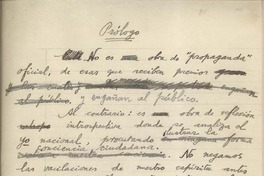 Prólogo
No es obra de "propaganda"
oficial, de esas que reciben premios
y engañan al público.
Al contrario: es obra de reflexión
introspectiva donde se analiza el
yo nacional, procurando ilustrar la
conciencia ciudadana. No negamos
las vacilaciones de nuestro espíritu antes